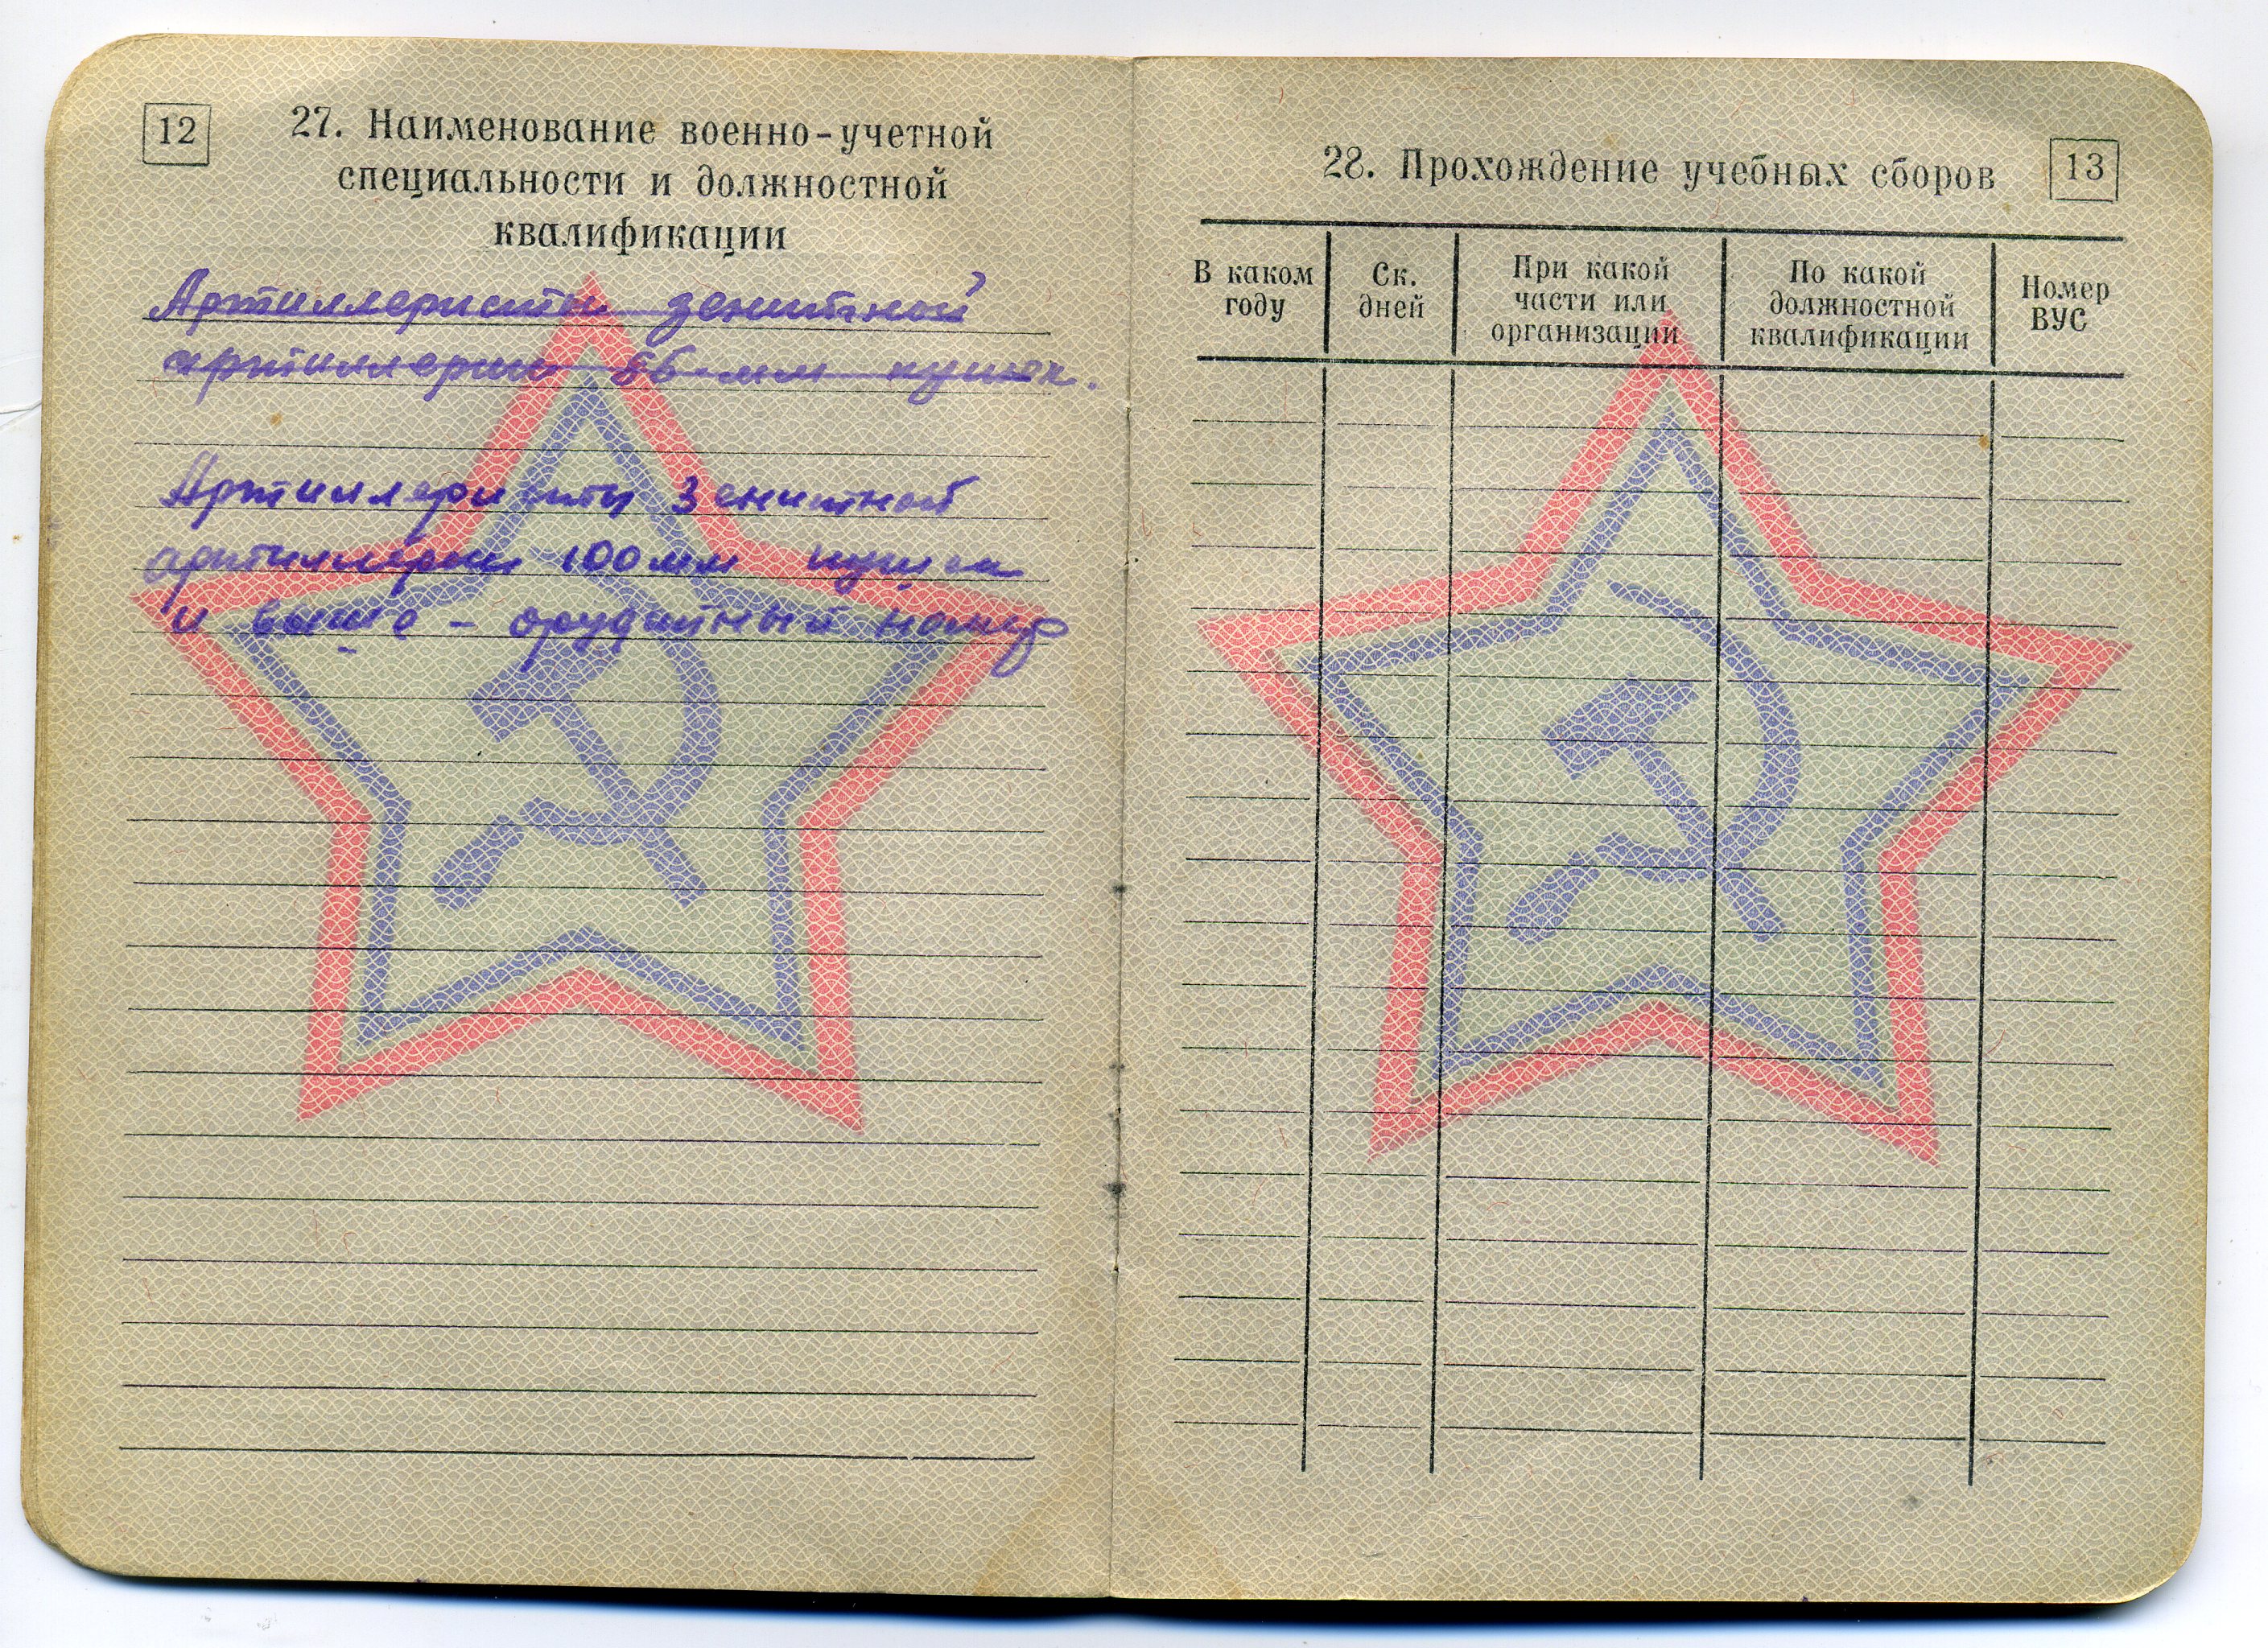 12
27. Наименование военно-учетной
специальности и должностной
квалификации
Артиллеристы зенитной
артиллерии 86 мм пушек.
Артиллеристы зенитной
артиллерии 100 мм пушек
и выше - орудийный номер
28. Прохождение учебных сборов
13
В каком
году
Ск.
дней
При какой
части или
организации
По какой
должностной
квалификации
Номер
ВУС